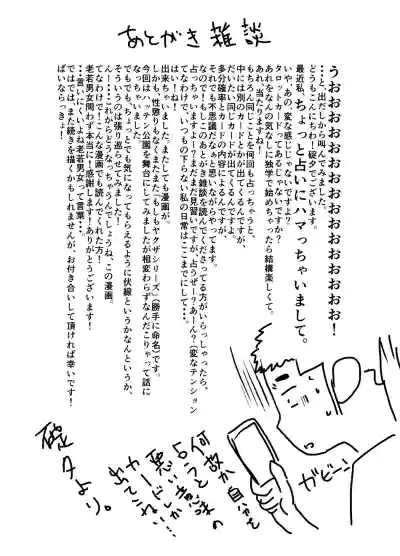 あとがき雑談
うおおおおおおおおおおおおおおおおおお！
・・・と、出だしから叫んでみました。
どうもこんにちわ！碇夕でございます。
最近私、ちょっと占いにハマっちゃいまして。
いや、あの、変な感じじゃないですよ？
タロットカードってあるじゃないですか？
あれをなんの気なしに独学で始めちゃったら結構楽しくて。
あれ、当たりますね！
もちろん同じことを何回も占っちゃうと、
中には別のカードとか出てくるんですが、
だいたい同じカードが出てくるんですよ。
多分確率とカードの内容によるんですが、
それでも不思議だなぁと思いながらやってます。
なので！もしこのあとがき雑談を読んでくださってる方がいらっしゃったら、
占っちゃいますよー？まだまだ見習いですが、占うぜー？あーん？（変なテンション
てなわけで、いつもの下らない私の日常はここまでにして・・・
はい！
出来ちゃいました。またしても漫画が。
しかも、性懲りもなくまたしてもヤクザシリーズ（勝手に命名）です。
今回はハッテン公園を舞台にしてみましたが相変わらずなんだこりゃって話に
なっちゃいました。
でも、ちょっとでも気になってもらえるように伏線というかなんというか、
そういうのは張り巡らせてみました！
んー・・・これからどうなっちゃうんでしょうね、この漫画。
てなわけで！こんな漫画でも読んでくれた方！
老若男女問わず本当に感謝します！ありがとうございます！
・・・言いにくいよね老若男女って言葉・・・。
ではでは、また続きを描くかもしれませんが、お付き合いして頂ければ幸いです！
ばいならっきょ！
ガビーン
何故か自分を
占うと
悪い意味の
カードしか
出てこない…
碇夕より。